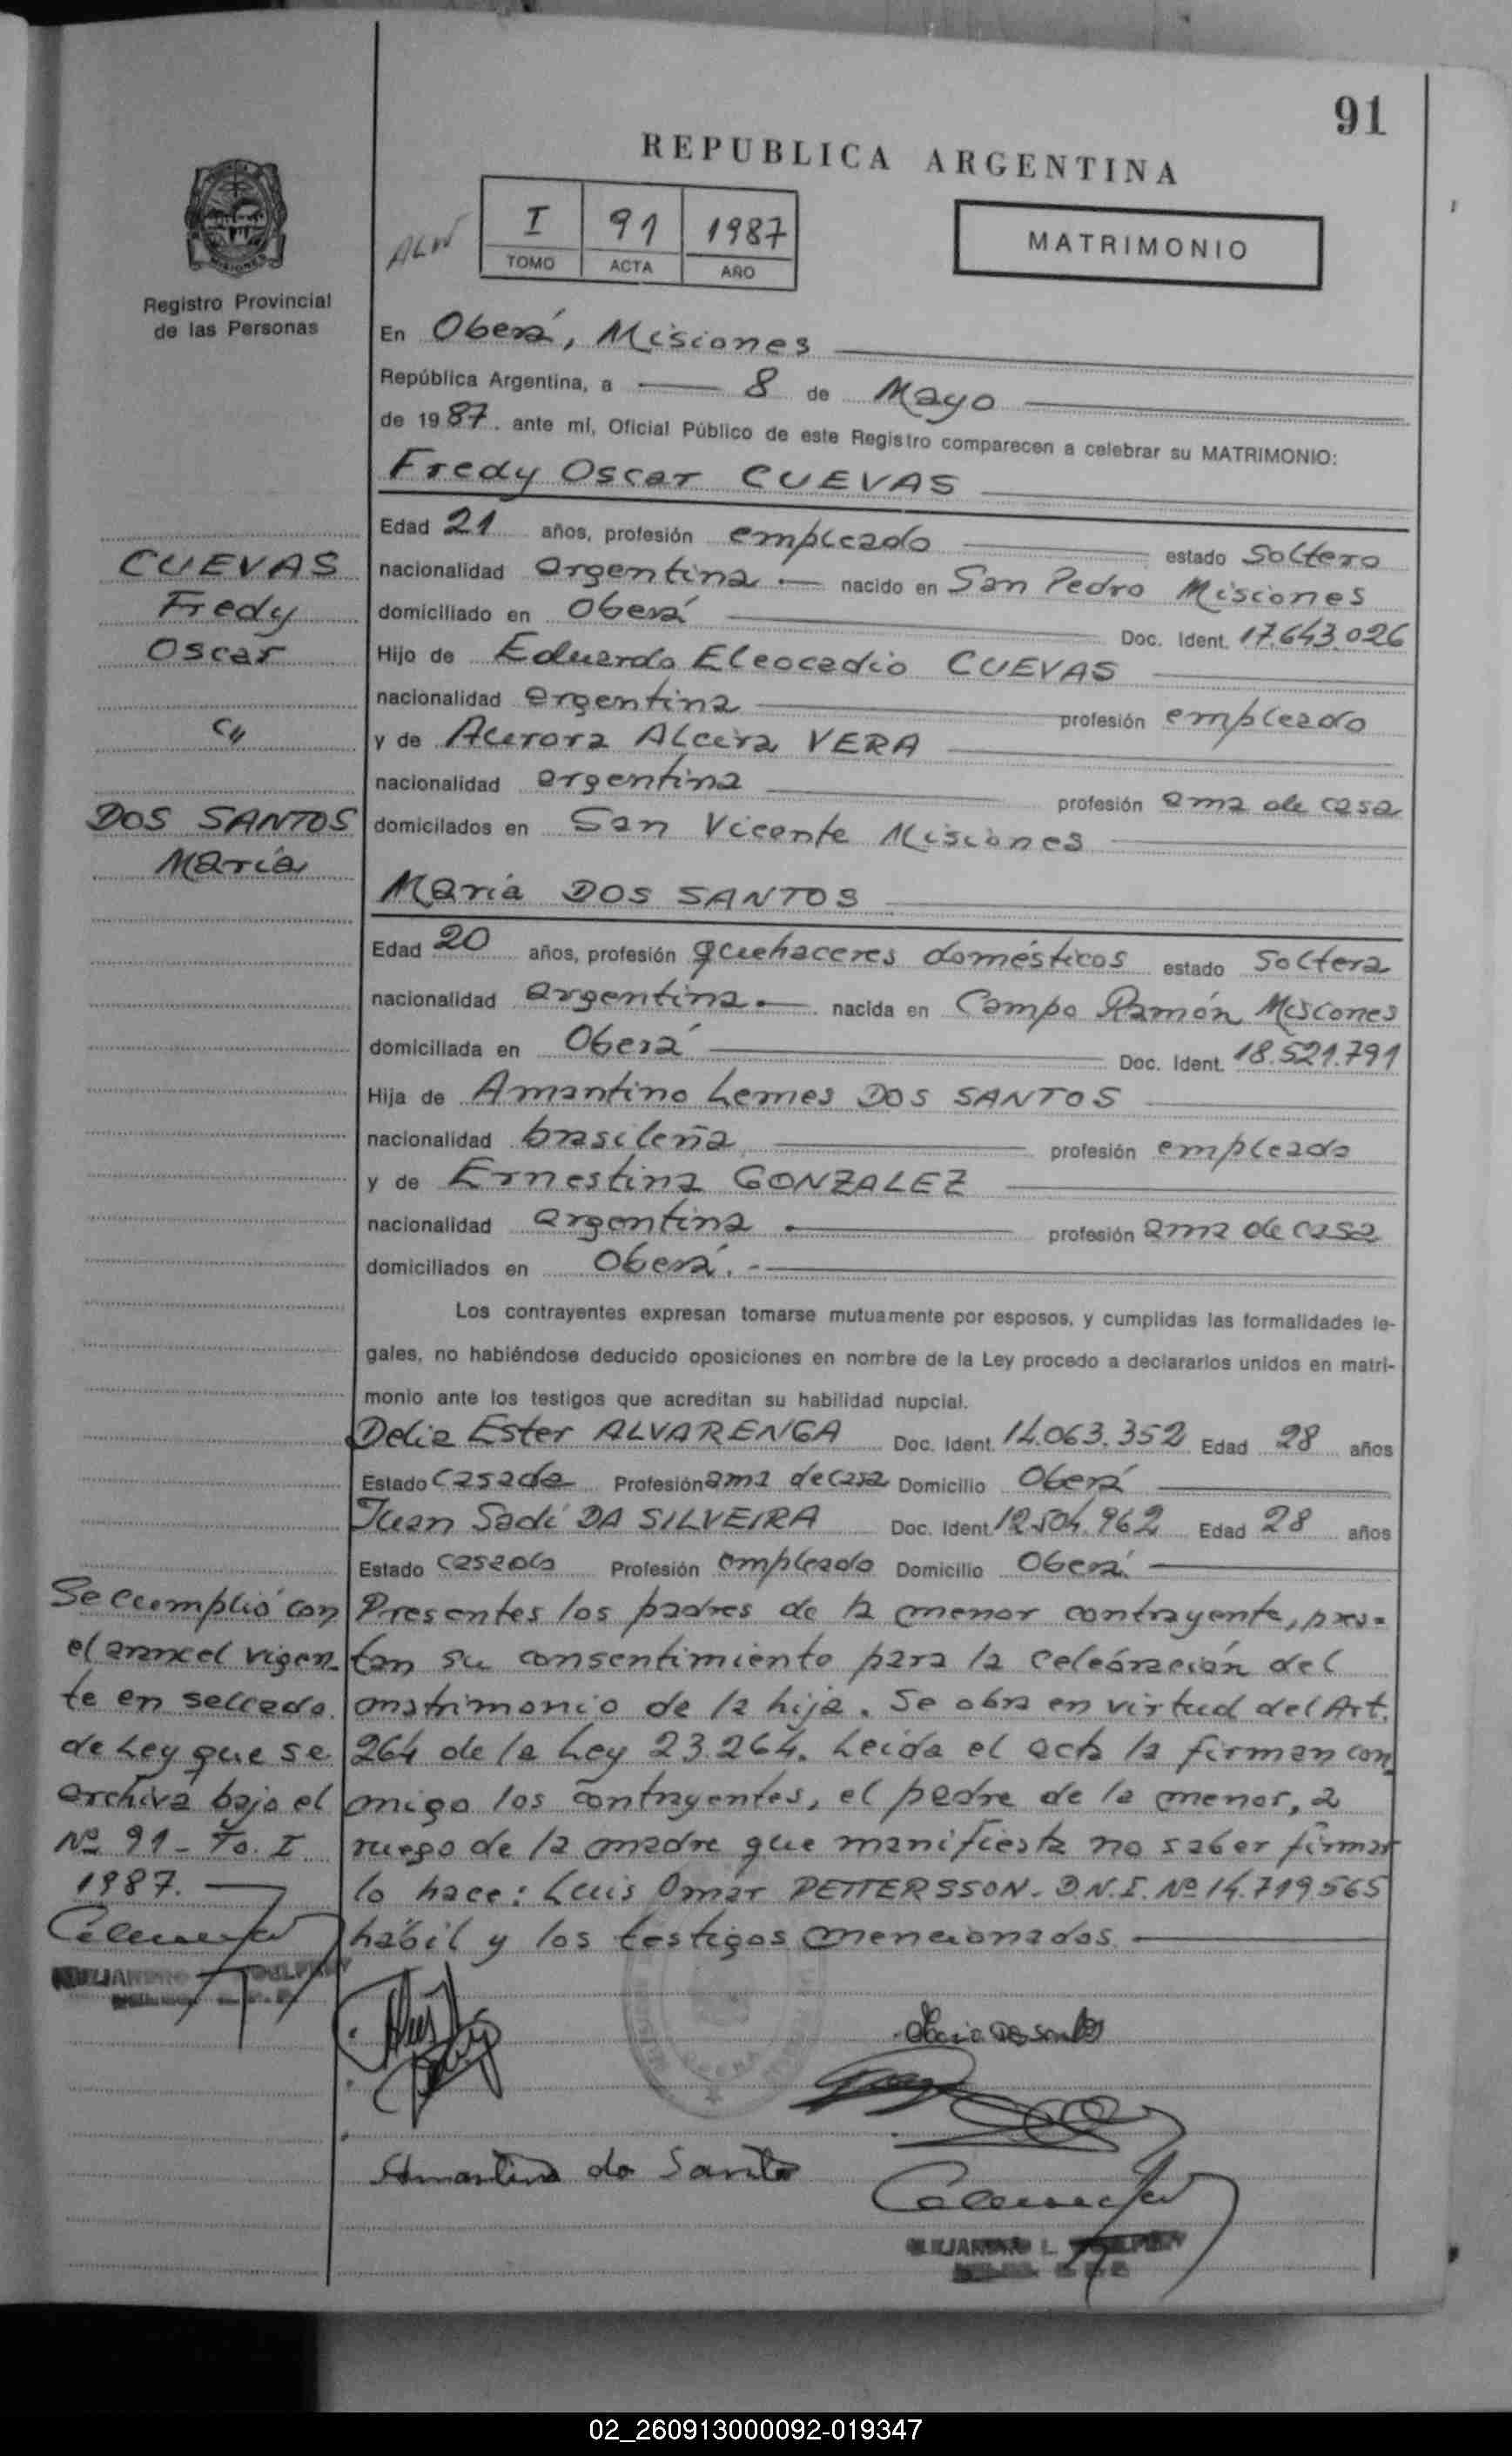 91
REPUBLICA ARGENTINA
ALW
I 91 1987
TOMO ACTA AÑO
MATRIMONIO
Registro Provincial
de las Personas
En Oberá, Misiones
República Argentina, a 8 de Mayo
de 1987. ante mi, Oficial Público de este Registro comparecen a celebrar su MATRIMONIO:
Fredy Oscar CUEVAS
Edad 21 años, profesión empleado estado Soltero
nacionalidad argentina.— nacido en San Pedro Misiones
domiciliado en Oberá Doc. Ident. 17.643.026
Hijo de Eduardo Eleocadio CUEVAS
nacionalidad argentina profesión empleado
y de Aurora Alcira VERA
nacionalidad argentina profesión ama de casa
domicilados en San Vicente Misiones
CUEVAS
Fredy
Oscar
c/
DOS SANTOS
María
María DOS SANTOS
Edad 20 años, profesión quehaceres domésticos estado Soltera
nacionalidad argentina.— nacida en Campo Ramón Misiones
domiciliada en Oberá Doc. Ident. 18.521.791
Hija de Amantino Lemes DOS SANTOS
nacionalidad brasileña profesión empleado
y de Ernestina GONZALEZ
nacionalidad argentina profesión ama de casa
domiciliados en Oberá.-
Los contrayentes expresan tomarse mutuamente por esposos, y cumplidas las formalidades le-
gales, no habiéndose deducido oposiciones en nombre de la Ley procedo a declararlos unidos en matri-
monio ante los testigos que acreditan su habilidad nupcial.
Delia Ester ALVARENGA Doc. Ident. 14.063.352 Edad 28 años
Estado casada Profesión ama de casa Domicilio Oberá
Juan Sadí DA SILVEIRA Doc. Ident. 12.504.962 Edad 28 años
Estado casado Profesión empleado Domicilio Oberá
Presentes los padres de la menor contrayente, pres-
tan su consentimiento para la celebración del
matrimonio de la hija. Se obra en virtud del Art.
264 de la Ley 23.264. Leída el acta la firman con-
migo los contrayentes, el padre de la menor, a
ruego de la madre que manifiesta no saber firmar
lo hace: Luis Omar PETTERSSON. D.N.I. Nº 14.719.565
hábil y los testigos mencionados.
Se cumplió con
el arancel vigen-
te en sellado
de Ley que se
archiva bajo el
Nº 91 - To. I
1987.
Maria Dos Santos
Amantino do Santo
02_260913000092-019347